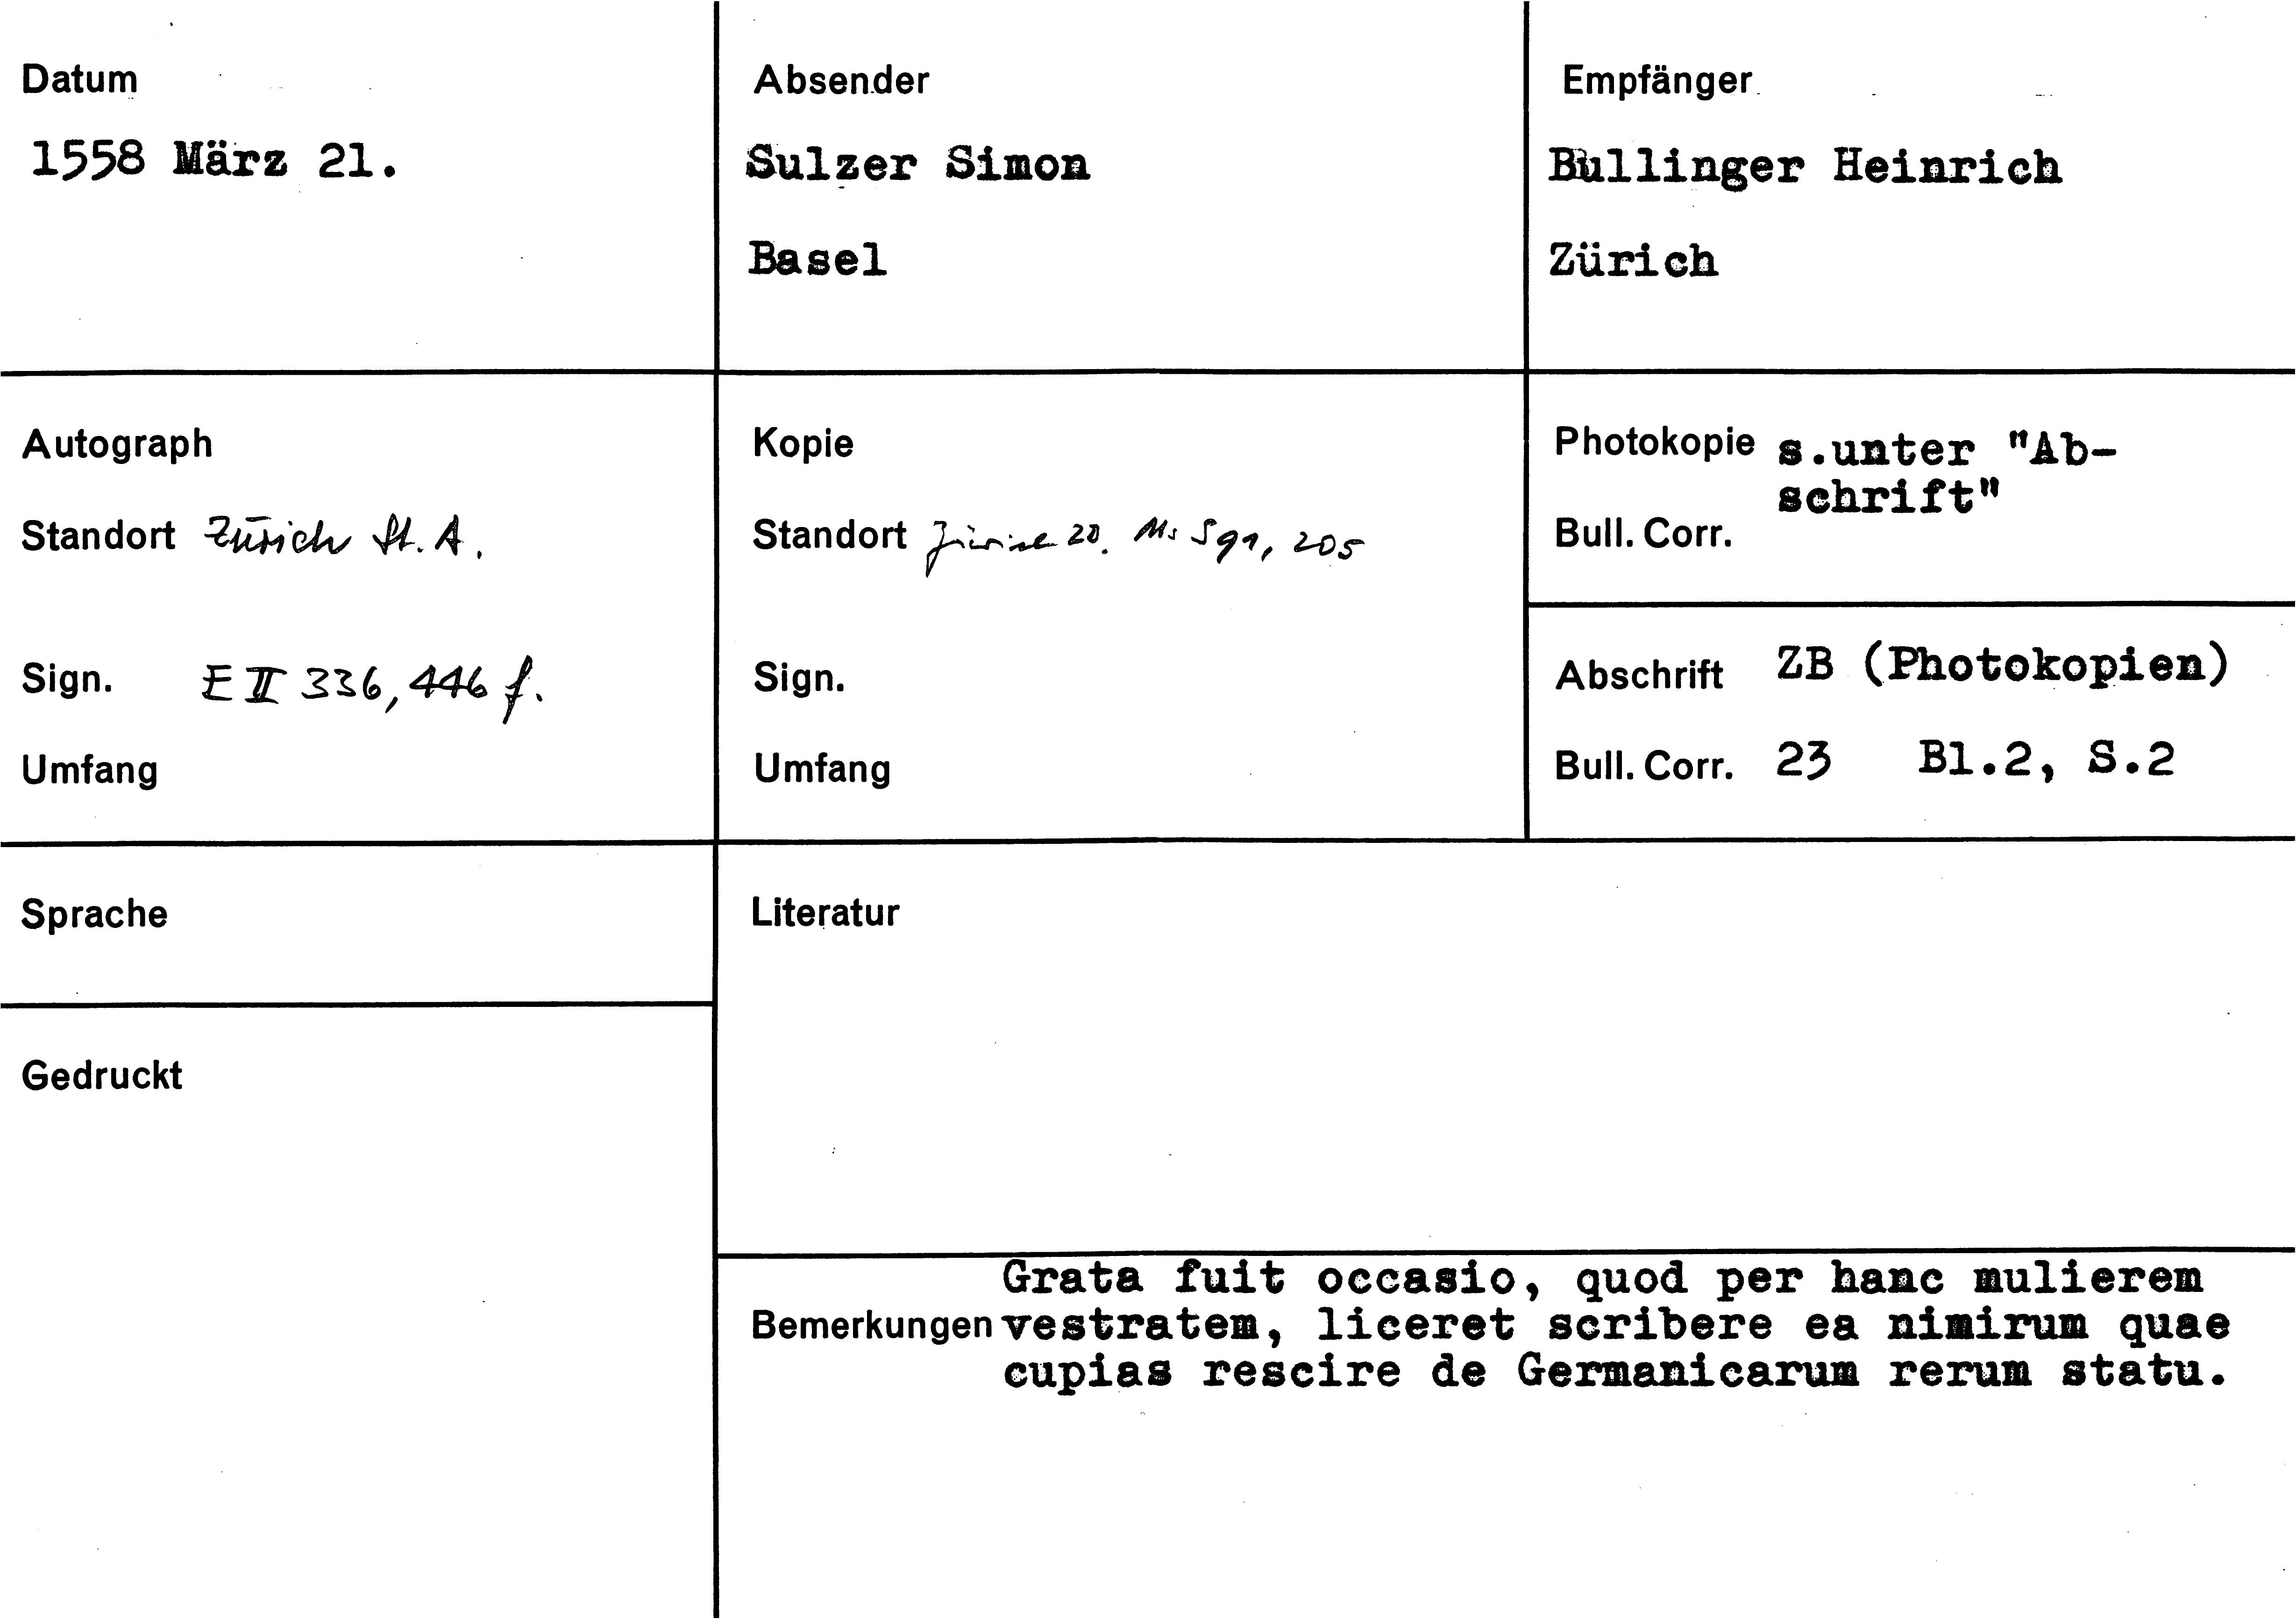 Datum
1558 März 21.
Absender
Sulzer Simon
Basel
Empfänger
Bullinger Heinrich
Zürich
Autograph
Standort Zürich St. A.
Sign. E II 336, 446 f.
Umfang
Kopie
Standort Zürich ZB. Ms S 91, 205
Sign.
Umfang
Photokopie s.unter "Ab-
schrift"
Bull. Corr.
Abschrift ZB (Photokopien)
Bull. Corr. 23 Bl.2, S.2
Sprache
Gedruckt
Literatur
Grata fuit occasio, quod per hanc mulierem
Bemerkungen vestratem, liceret scribere ea nimirum quae
cupias rescire de Germanicarum rerum statu.